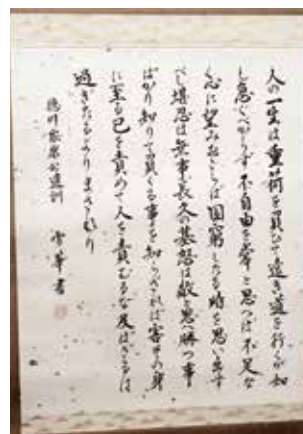 人の一生は重荷を負ひて遠き道を行くが如
し急ぐべからず不自由を常と思へば不足な
く心に望みおこらば困窮したる時を思ひ出す
べし堪忍は無事長久の基怒は敵と思へ勝つ事
ばかり知りて負くる事を知らざれば害其の身
に至る己を責めて人を責むるな及ばざるは
過ぎたるよりまされり
徳川家康公遺訓 書